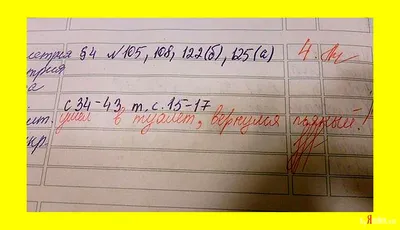 метрия §4 №105, 108, 122(б), 125(а) 4.
трия
а
с 34-43. т.с. 15-17
ит. ушел в туалет, вернулся пьяный!
кр.